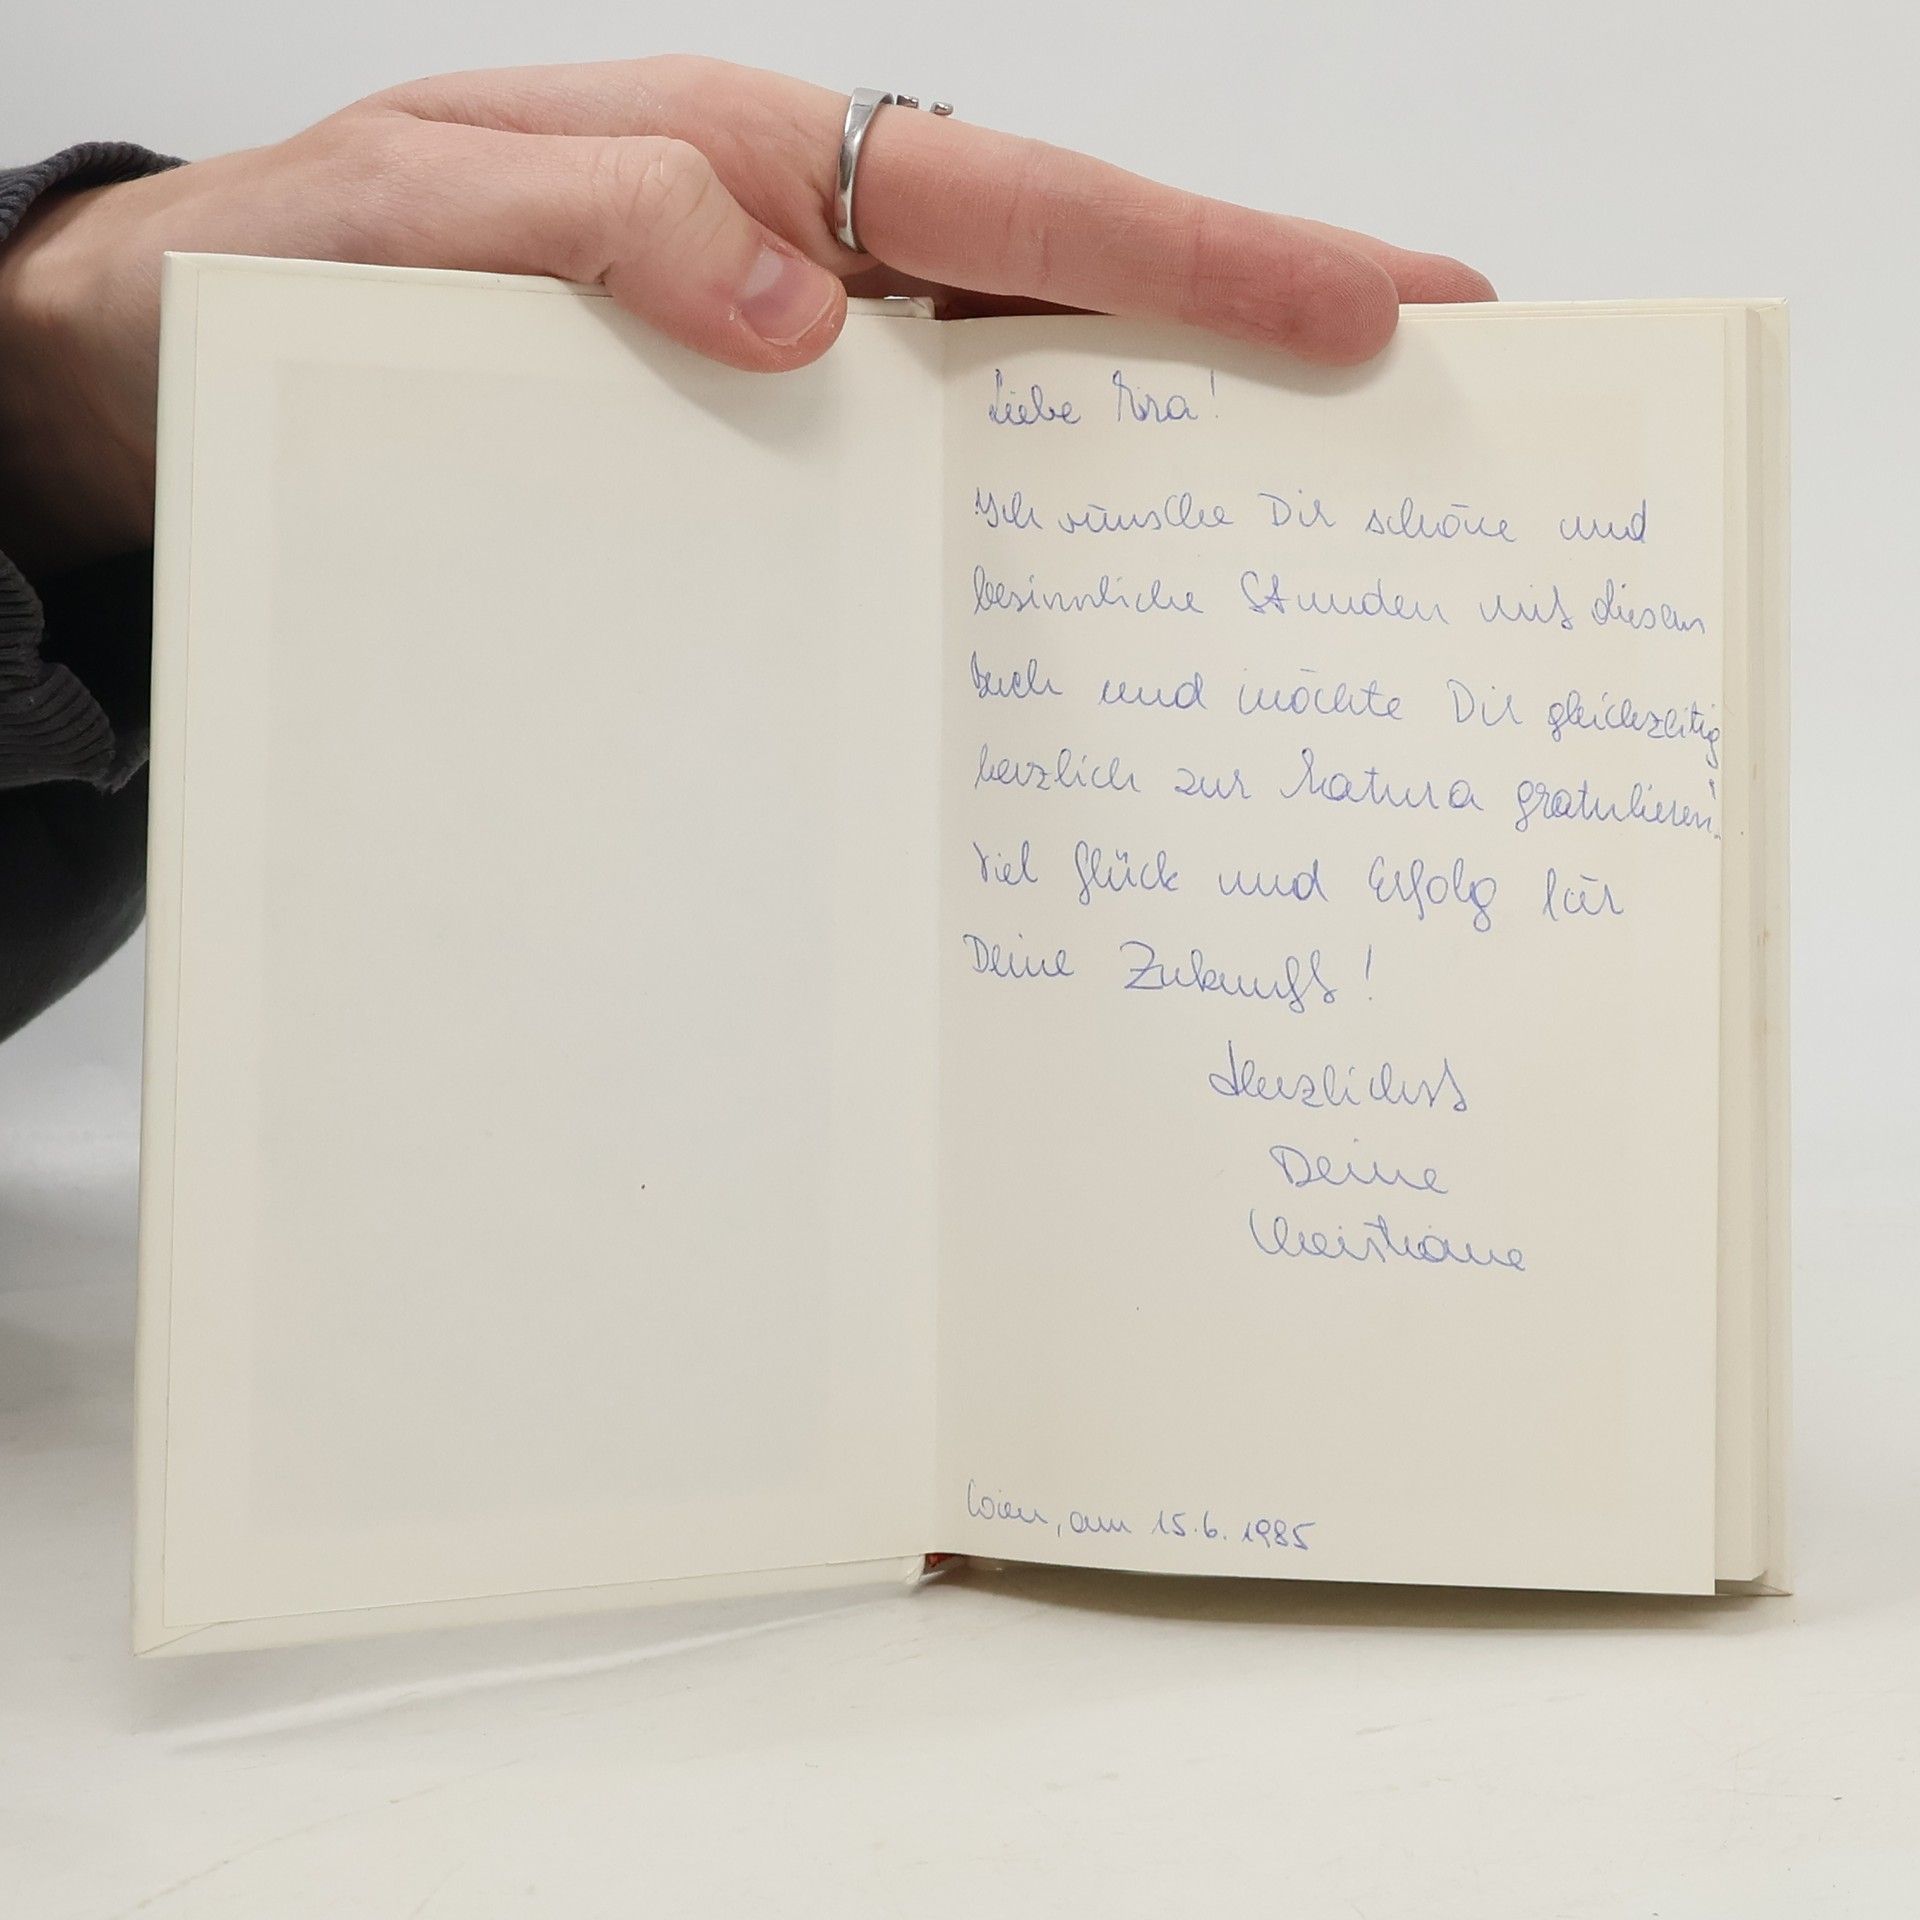 Liebe
Ich wünsche Dir schöne und
besinnliche Stunden mit diesem
Buch und möchte Dir gleichzeitig
herzlich zur Matura gratulieren!
Viel Glück und Erfolg für
Deine Zukunft!
Herzlichst
Deine
Christiane
Wien, am 15.6.1985